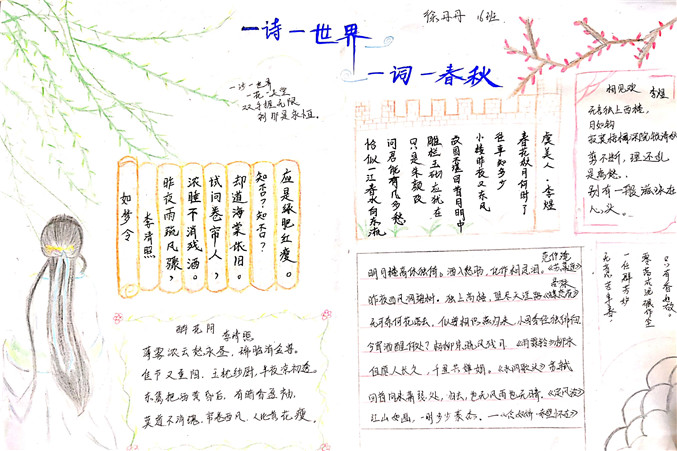 徐丹丹 16班
一诗一世界
一词一春秋
一诗一世界
一花一天堂
双手握无限
刹那是永恒。
如梦令
李清照
昨夜雨疏风骤，
浓睡不消残酒。
试问卷帘人，
却道海棠依旧。
知否？知否？
应是绿肥红瘦。
醉花阴
李清照
薄雾浓云愁永昼，瑞脑消金兽。
佳节又重阳，玉枕纱厨，半夜凉初透。
东篱把酒黄昏后，有暗香盈袖。
莫道不消魂，帘卷西风，人比黄花瘦。
虞美人·李煜
春花秋月何时了
往事知多少
小楼昨夜又东风
故国不堪回首月明中
雕栏玉砌应犹在
只是朱颜改
问君能有几多愁
恰似一江春水向东流
相见欢 李煜
无言独上西楼，
月如钩
寂寞梧桐深院锁清秋
剪不断，理还乱，
是离愁。
别有一般滋味在
人心头。
范仲淹
明月楼高休独倚。酒入愁肠，化作相思泪。《苏幕遮》
晏殊
昨夜西风凋碧树。独上高楼，望尽天涯路《蝶恋花》
无可奈何花落去，似曾相识燕归来，小园香径独徘徊
今宵酒醒何处？杨柳岸晓风残月 《雨霖铃》柳永
但愿人长久，千里共婵娟。《水调歌头》苏轼
回首向来萧瑟处，归去，也无风雨也无晴。《定风波》
江山如画，一时多少豪杰。——《念奴娇·赤壁怀古》
无意苦争春，
一任群芳妒
零落成泥碾作尘
只有香如故。